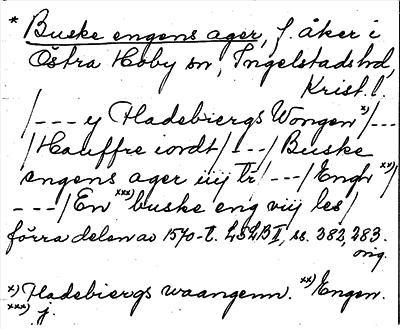 * Buske engens ager, f. åker i
Östra Hoby sn, Ingelstads hd,
Krist. l.
/--- y Hadebiergs Wongen x)/---
/Hauffre iordt/---/Buske
engens ager iiij tr/---/Engh xx)/
---/En xxx) buske eng viij les/
förra delen av 1570-t. LSLB II, ss. 382, 283.
orig.
x) Hadebiergs waangenn. xx) Engen.
xxx) j.